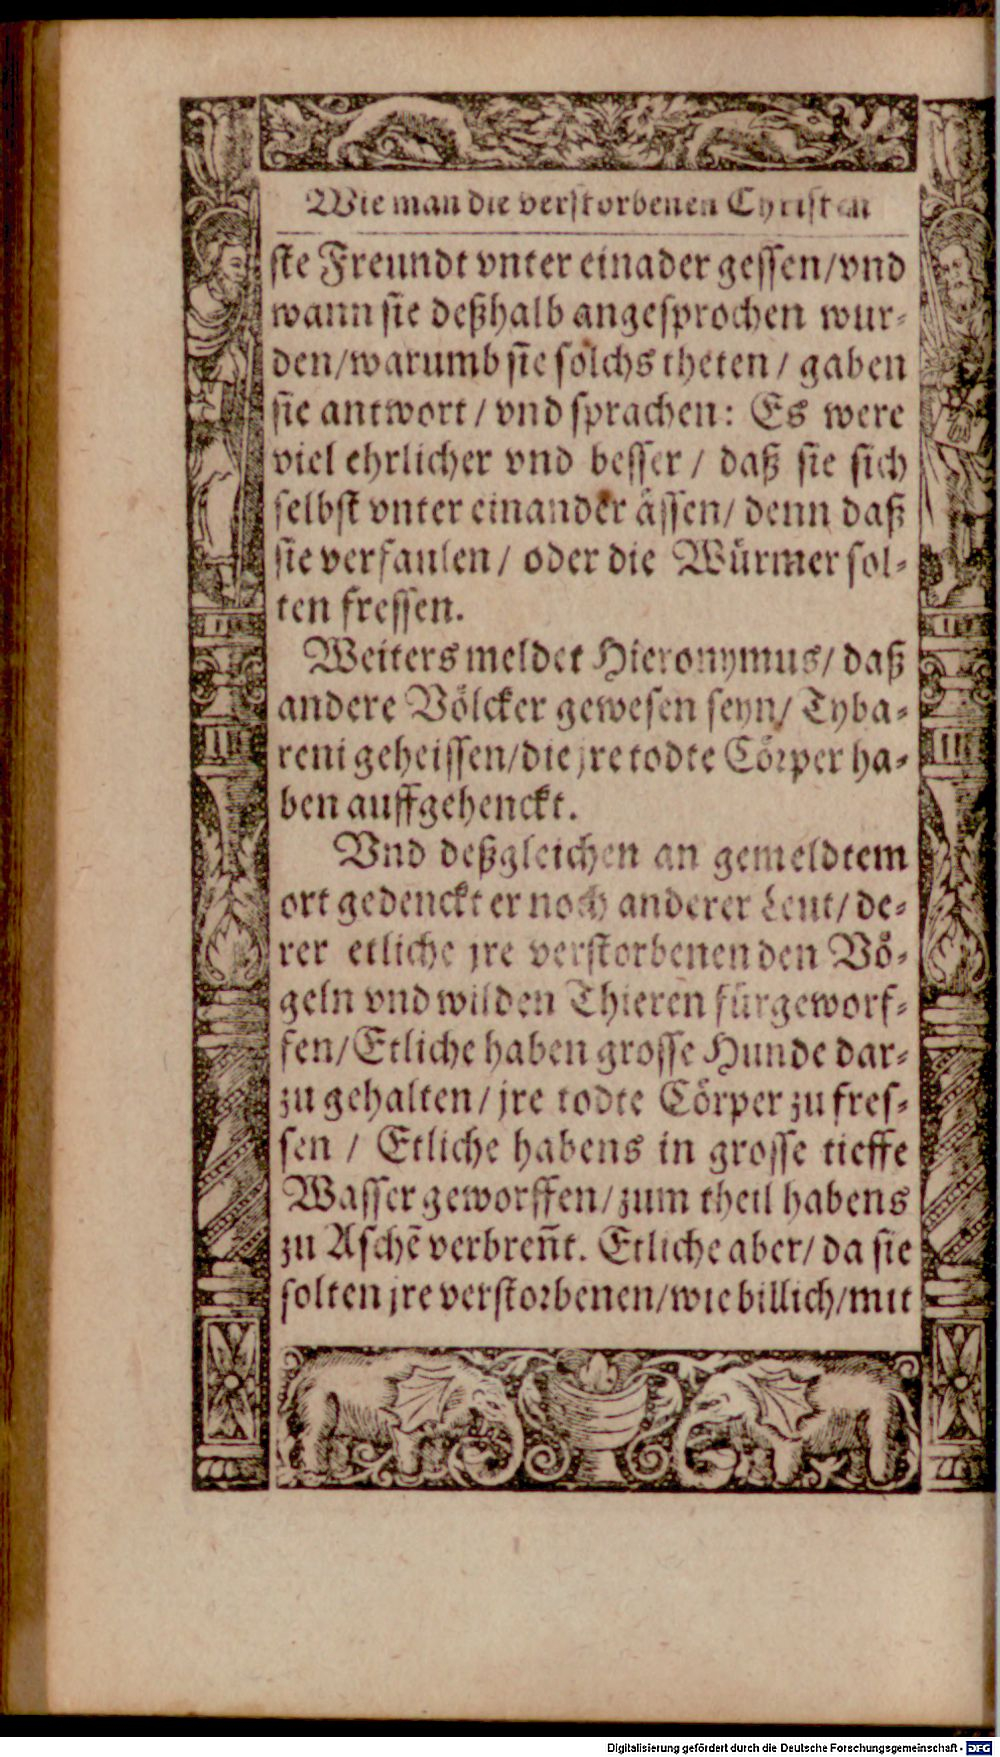 Wie man die verstorbenen Christen
ste Freundt vnter einader gessen/vnd
wann sie deßhalb angesprochen wur-
den/warumb sie solchs theten / gaben
sie antwort / vnd sprachen: Es were
viel ehrlicher vnd besser / daß sie sich
selbst vnter einander ässen/ denn daß
sie verfaulen / oder die Würmer sol-
ten fressen.
Weiters meldet Hieronymus/ daß
andere Völcker gewesen seyn/ Tyba-
reni geheissen/die jre todte Cörper ha-
ben auffgehenckt.
Vnd deßgleichen an gemeldtem
ort gedenckt er noch anderer Leut/ de-
rer etliche jre verstorbenen den Vö-
geln vnd wilden Thieren fürgeworf-
fen/Etliche haben grosse Hunde dar-
zu gehalten / jre todte Cörper zu fres-
sen / Etliche habens in grosse tieffe
Wasser geworffen/zum theil habens
zu Aschẽ verbreñt. Etliche aber/ da sie
solten jre verstorbenen/wie billich/mit
Digitalisierung gefördert durch die Deutsche Forschungsgemeinschaft - DFG